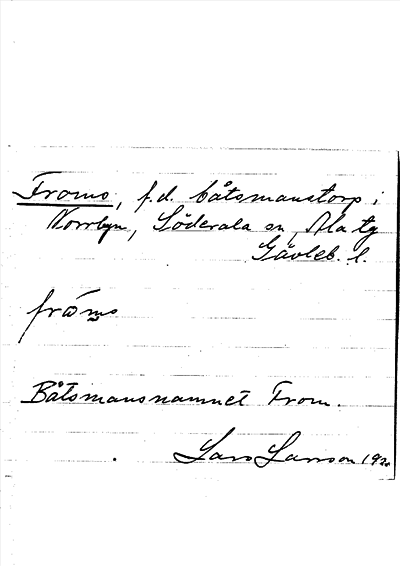 Froms, f.d. båtsmanstorp i
Norrbyn, Söderala sn, Ala tg
Gävleb. l.
fröms
Båtsmansnamnet From.
Lars Larsson 192